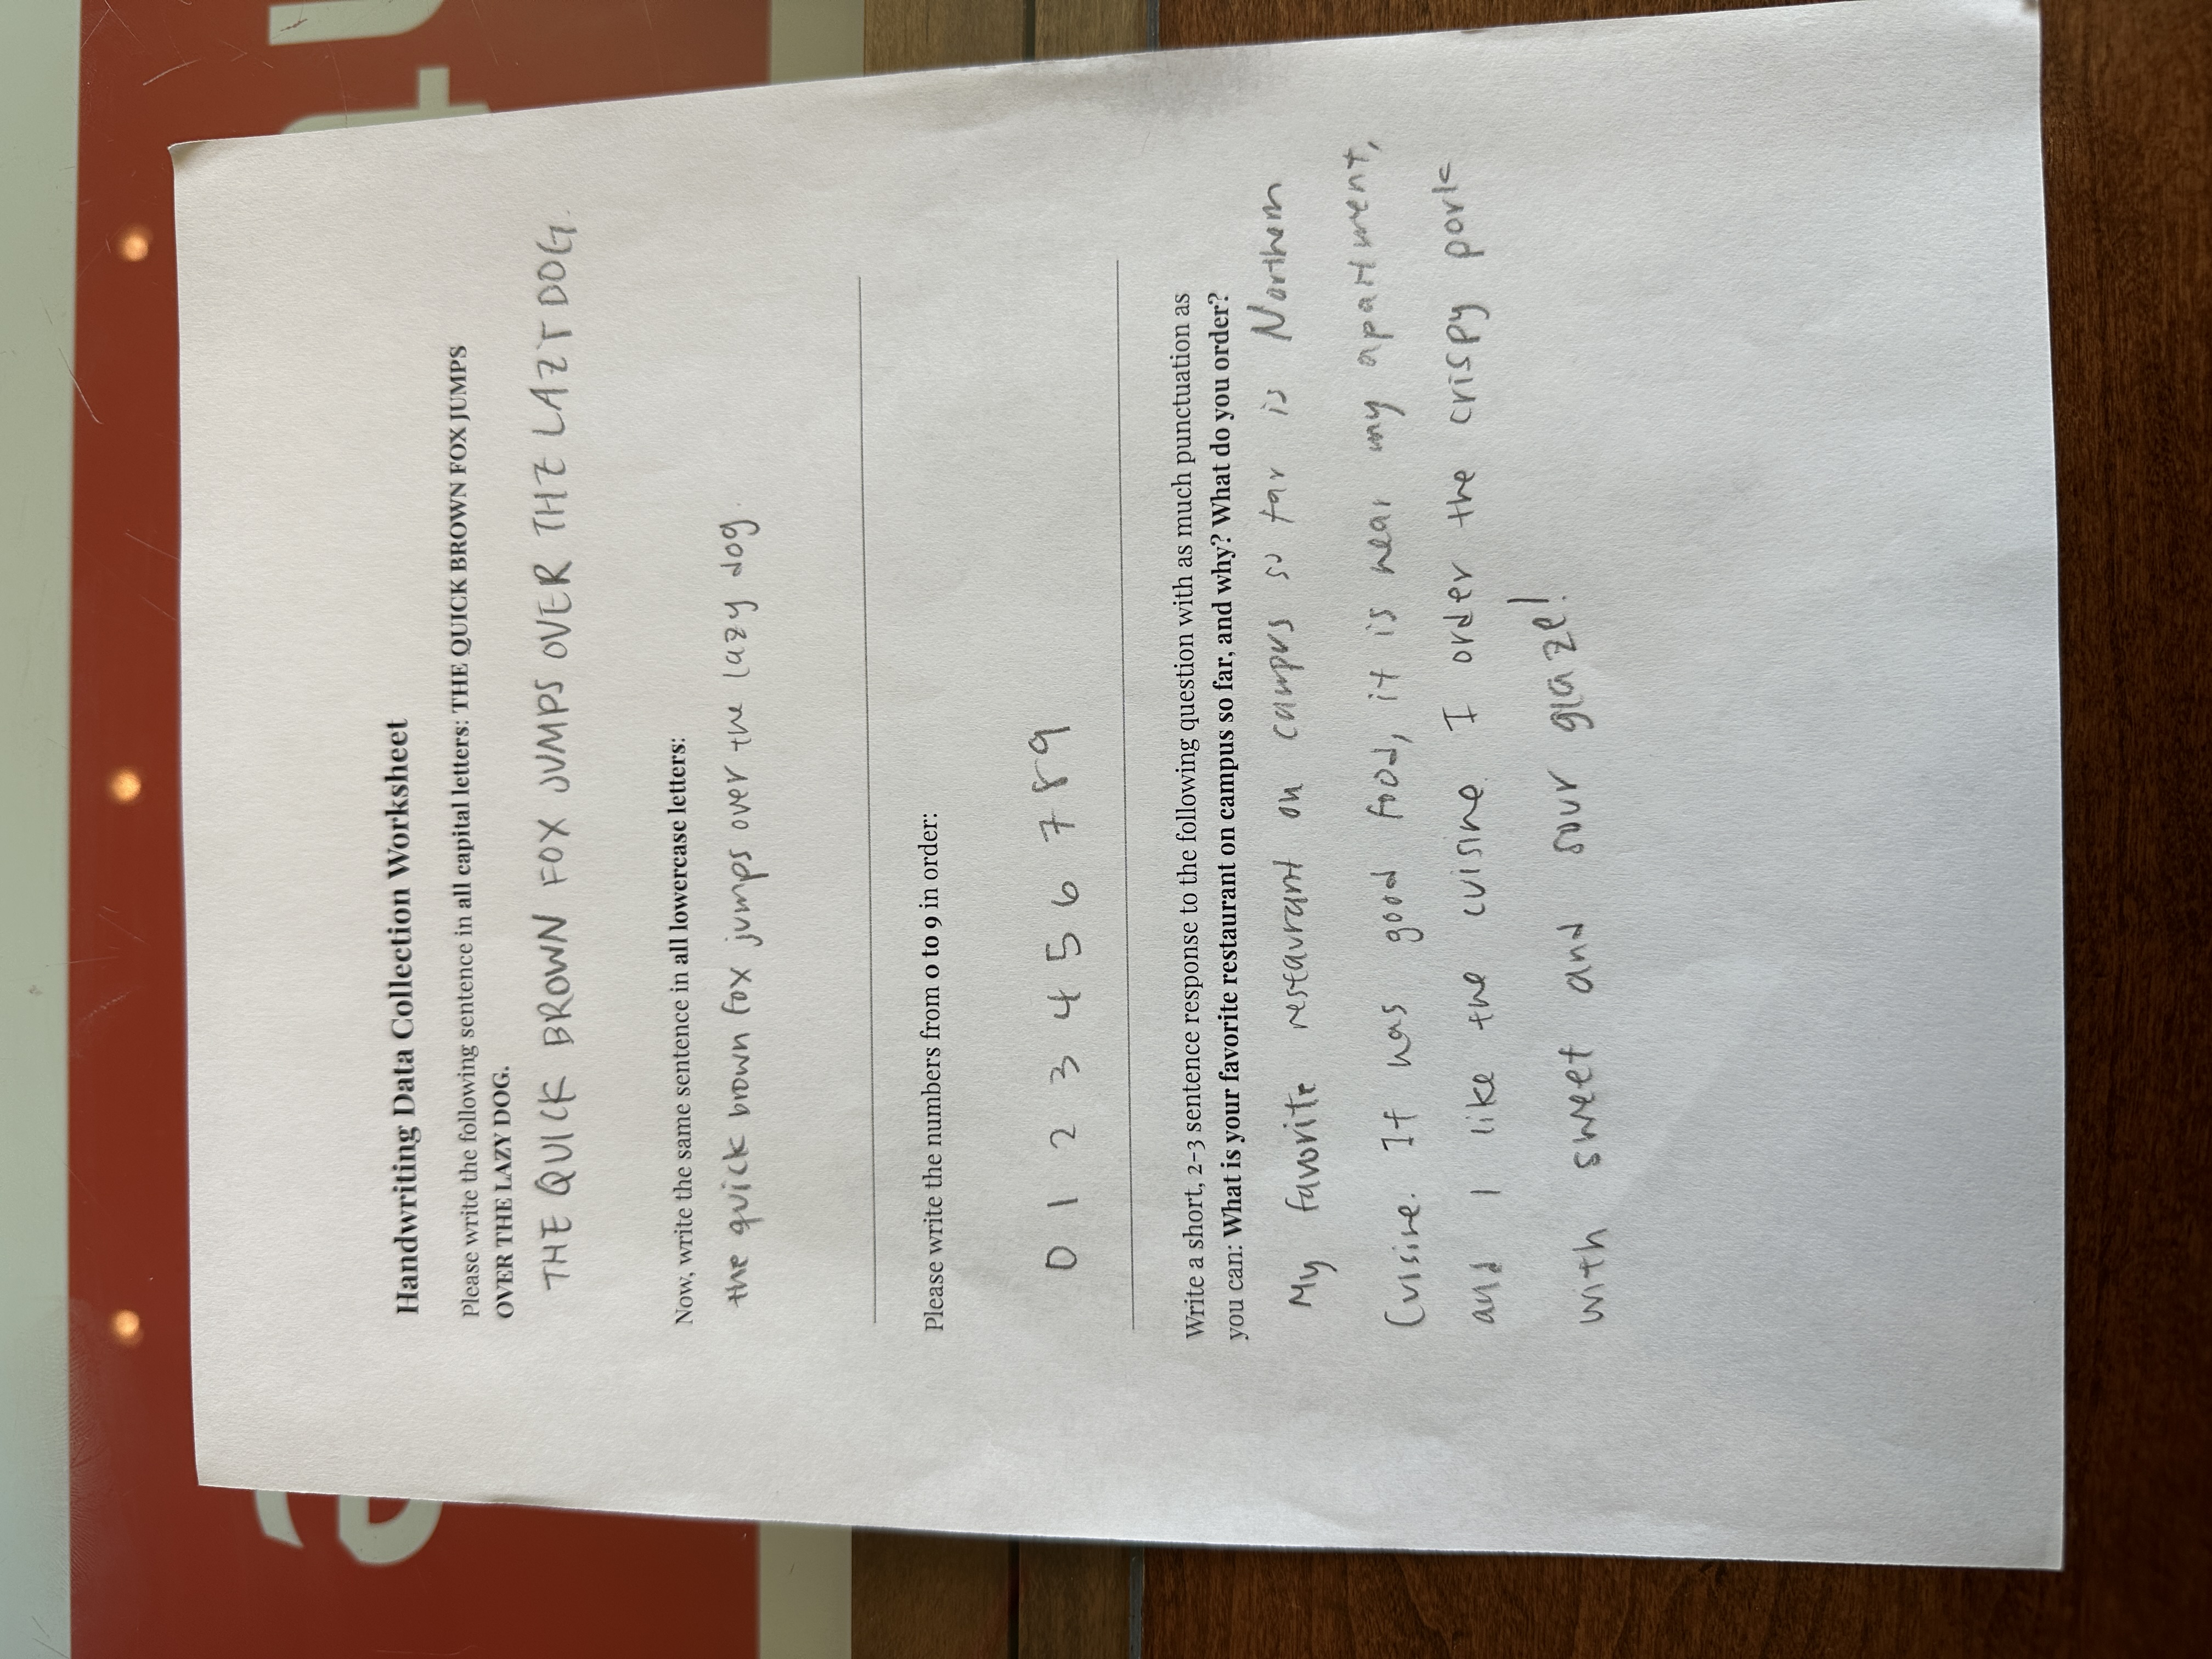 Handwriting Data Collection Worksheet
Please write the following sentence in all capital letters: THE QUICK BROWN FOX JUMPS
OVER THE LAZY DOG.
THE QUICK BROWN FOX JUMPS OVER THE LAZY DOG.
Now, write the same sentence in all lowercase letters:
the quick brown fox jumps over the lazy dog.
Please write the numbers from 0 to 9 in order:
0 1 2 3 4 5 6 7 8 9
Write a short, 2-3 sentence response to the following question with as much punctuation as
you can: What is your favorite restaurant on campus so far, and why? What do you order?
My favorite restaurant on campus so far is Northern
Cuisine. It has good food, it is near my apartment,
and I like the cuisine. I order the crispy pork
with sweet and sour glaze!